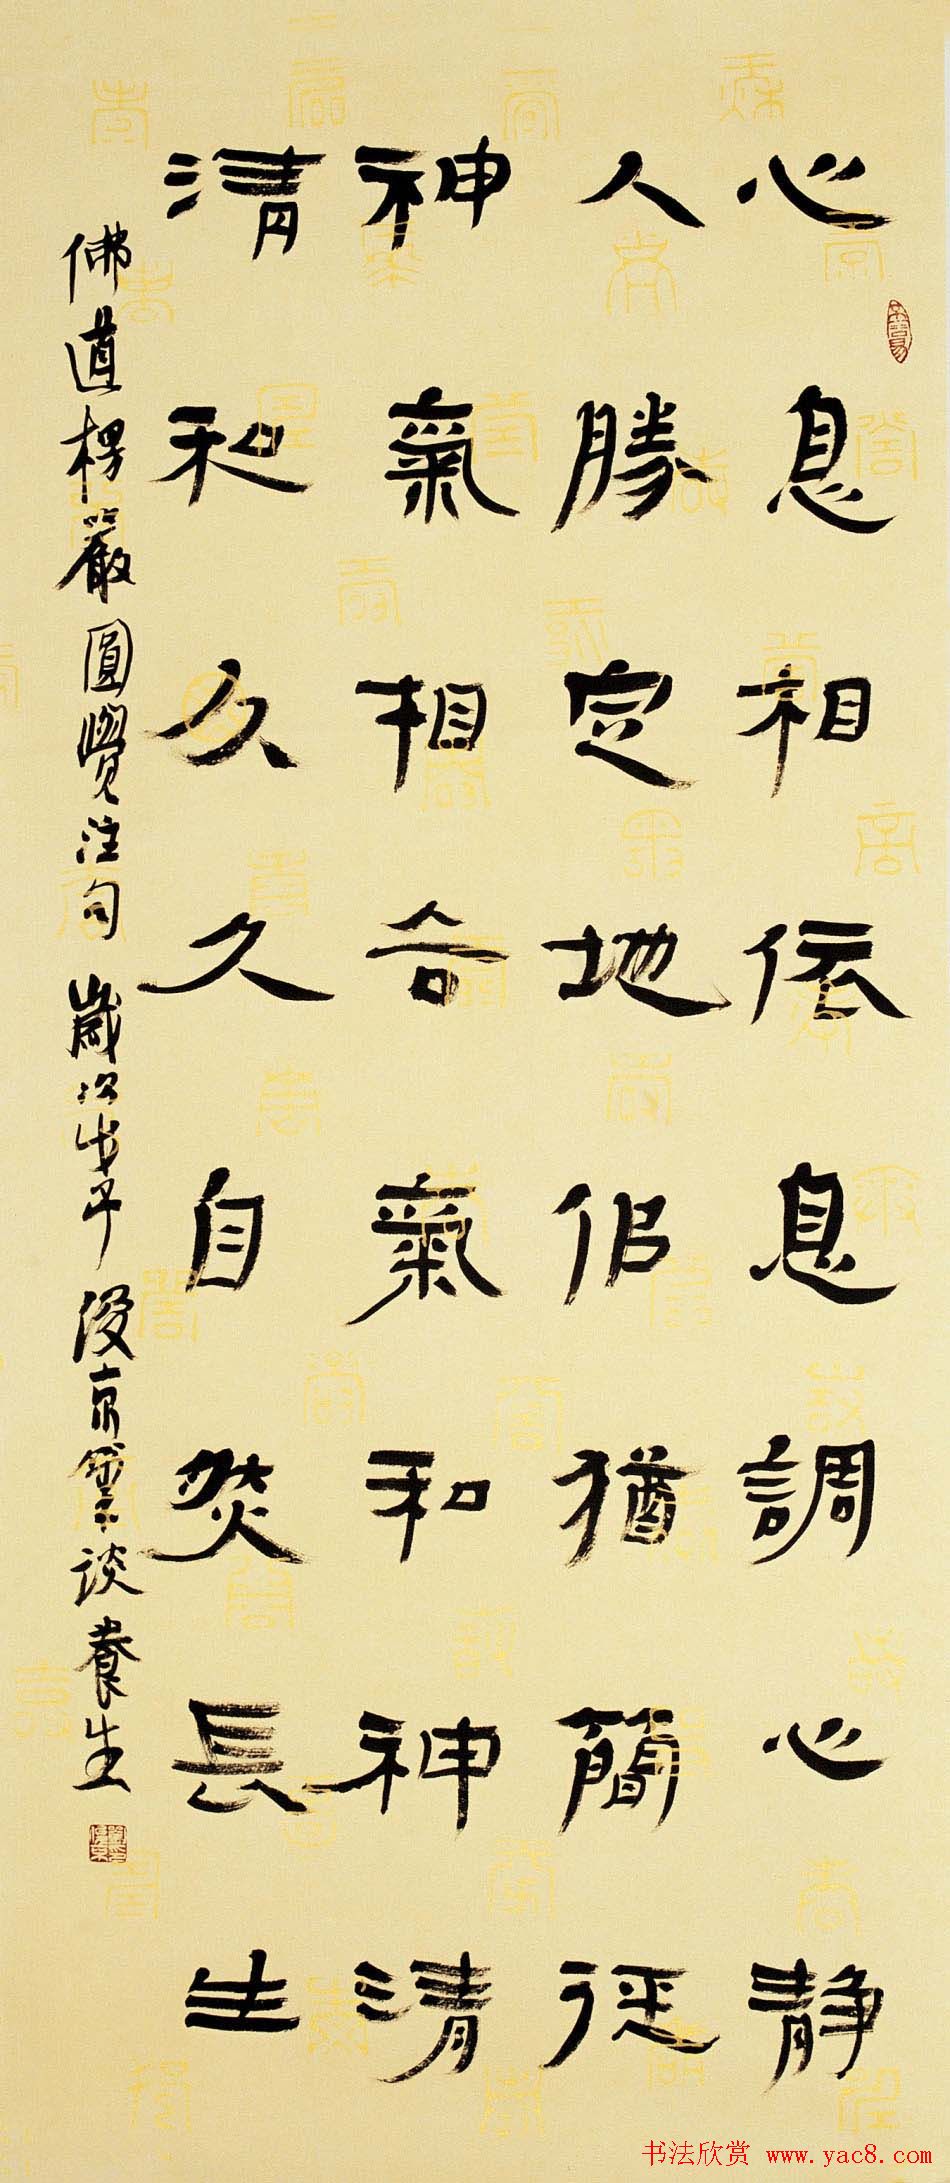 心息相依息調心静
人勝定地佀猶簡径
神氣相合氣和神清
清和久久自然長生
佛道楞嚴圓覺注句 歲次戊子 段京肇談養生
书法欣赏 www.yac8.com